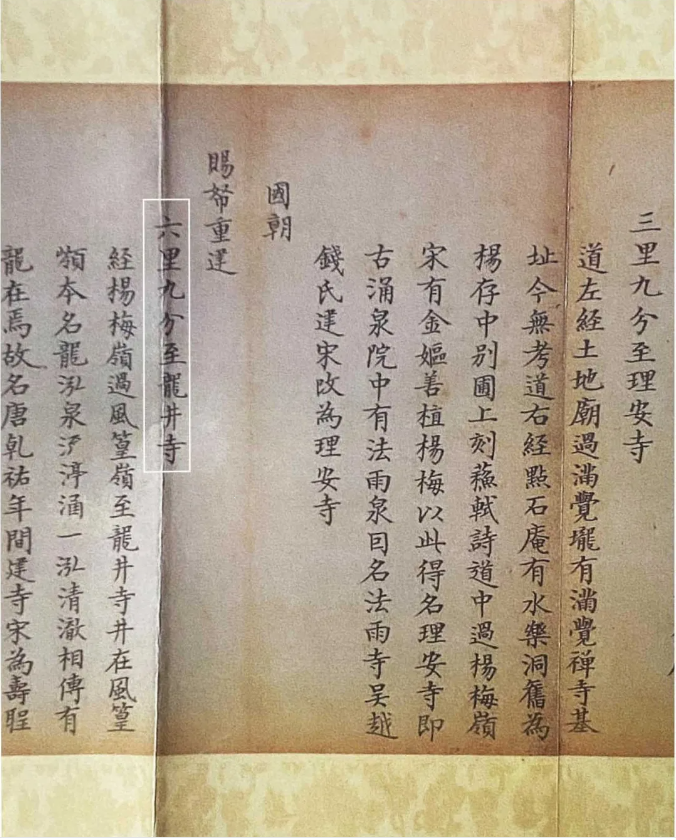 三里九分至理安寺
道左經土地廟過滿覺壠有滿覺禅寺基
址今無考道右經點石庵有水樂洞舊為
楊存中别圃上刻蘓軾詩道中過楊梅嶺
宋有金嫗善植楊梅以此得名理安寺即
古涌泉院中有法雨泉因名法雨寺吴越
錢氏建宋改為理安寺
國朝
賜帑重建
六里九分至龍井寺
經楊梅嶺過風篁嶺至龍井寺井在風篁
嶺本名龍泓泉渟涌一泓清澈相傳有
龍在焉故名唐乹祐年間建寺宋為壽聖